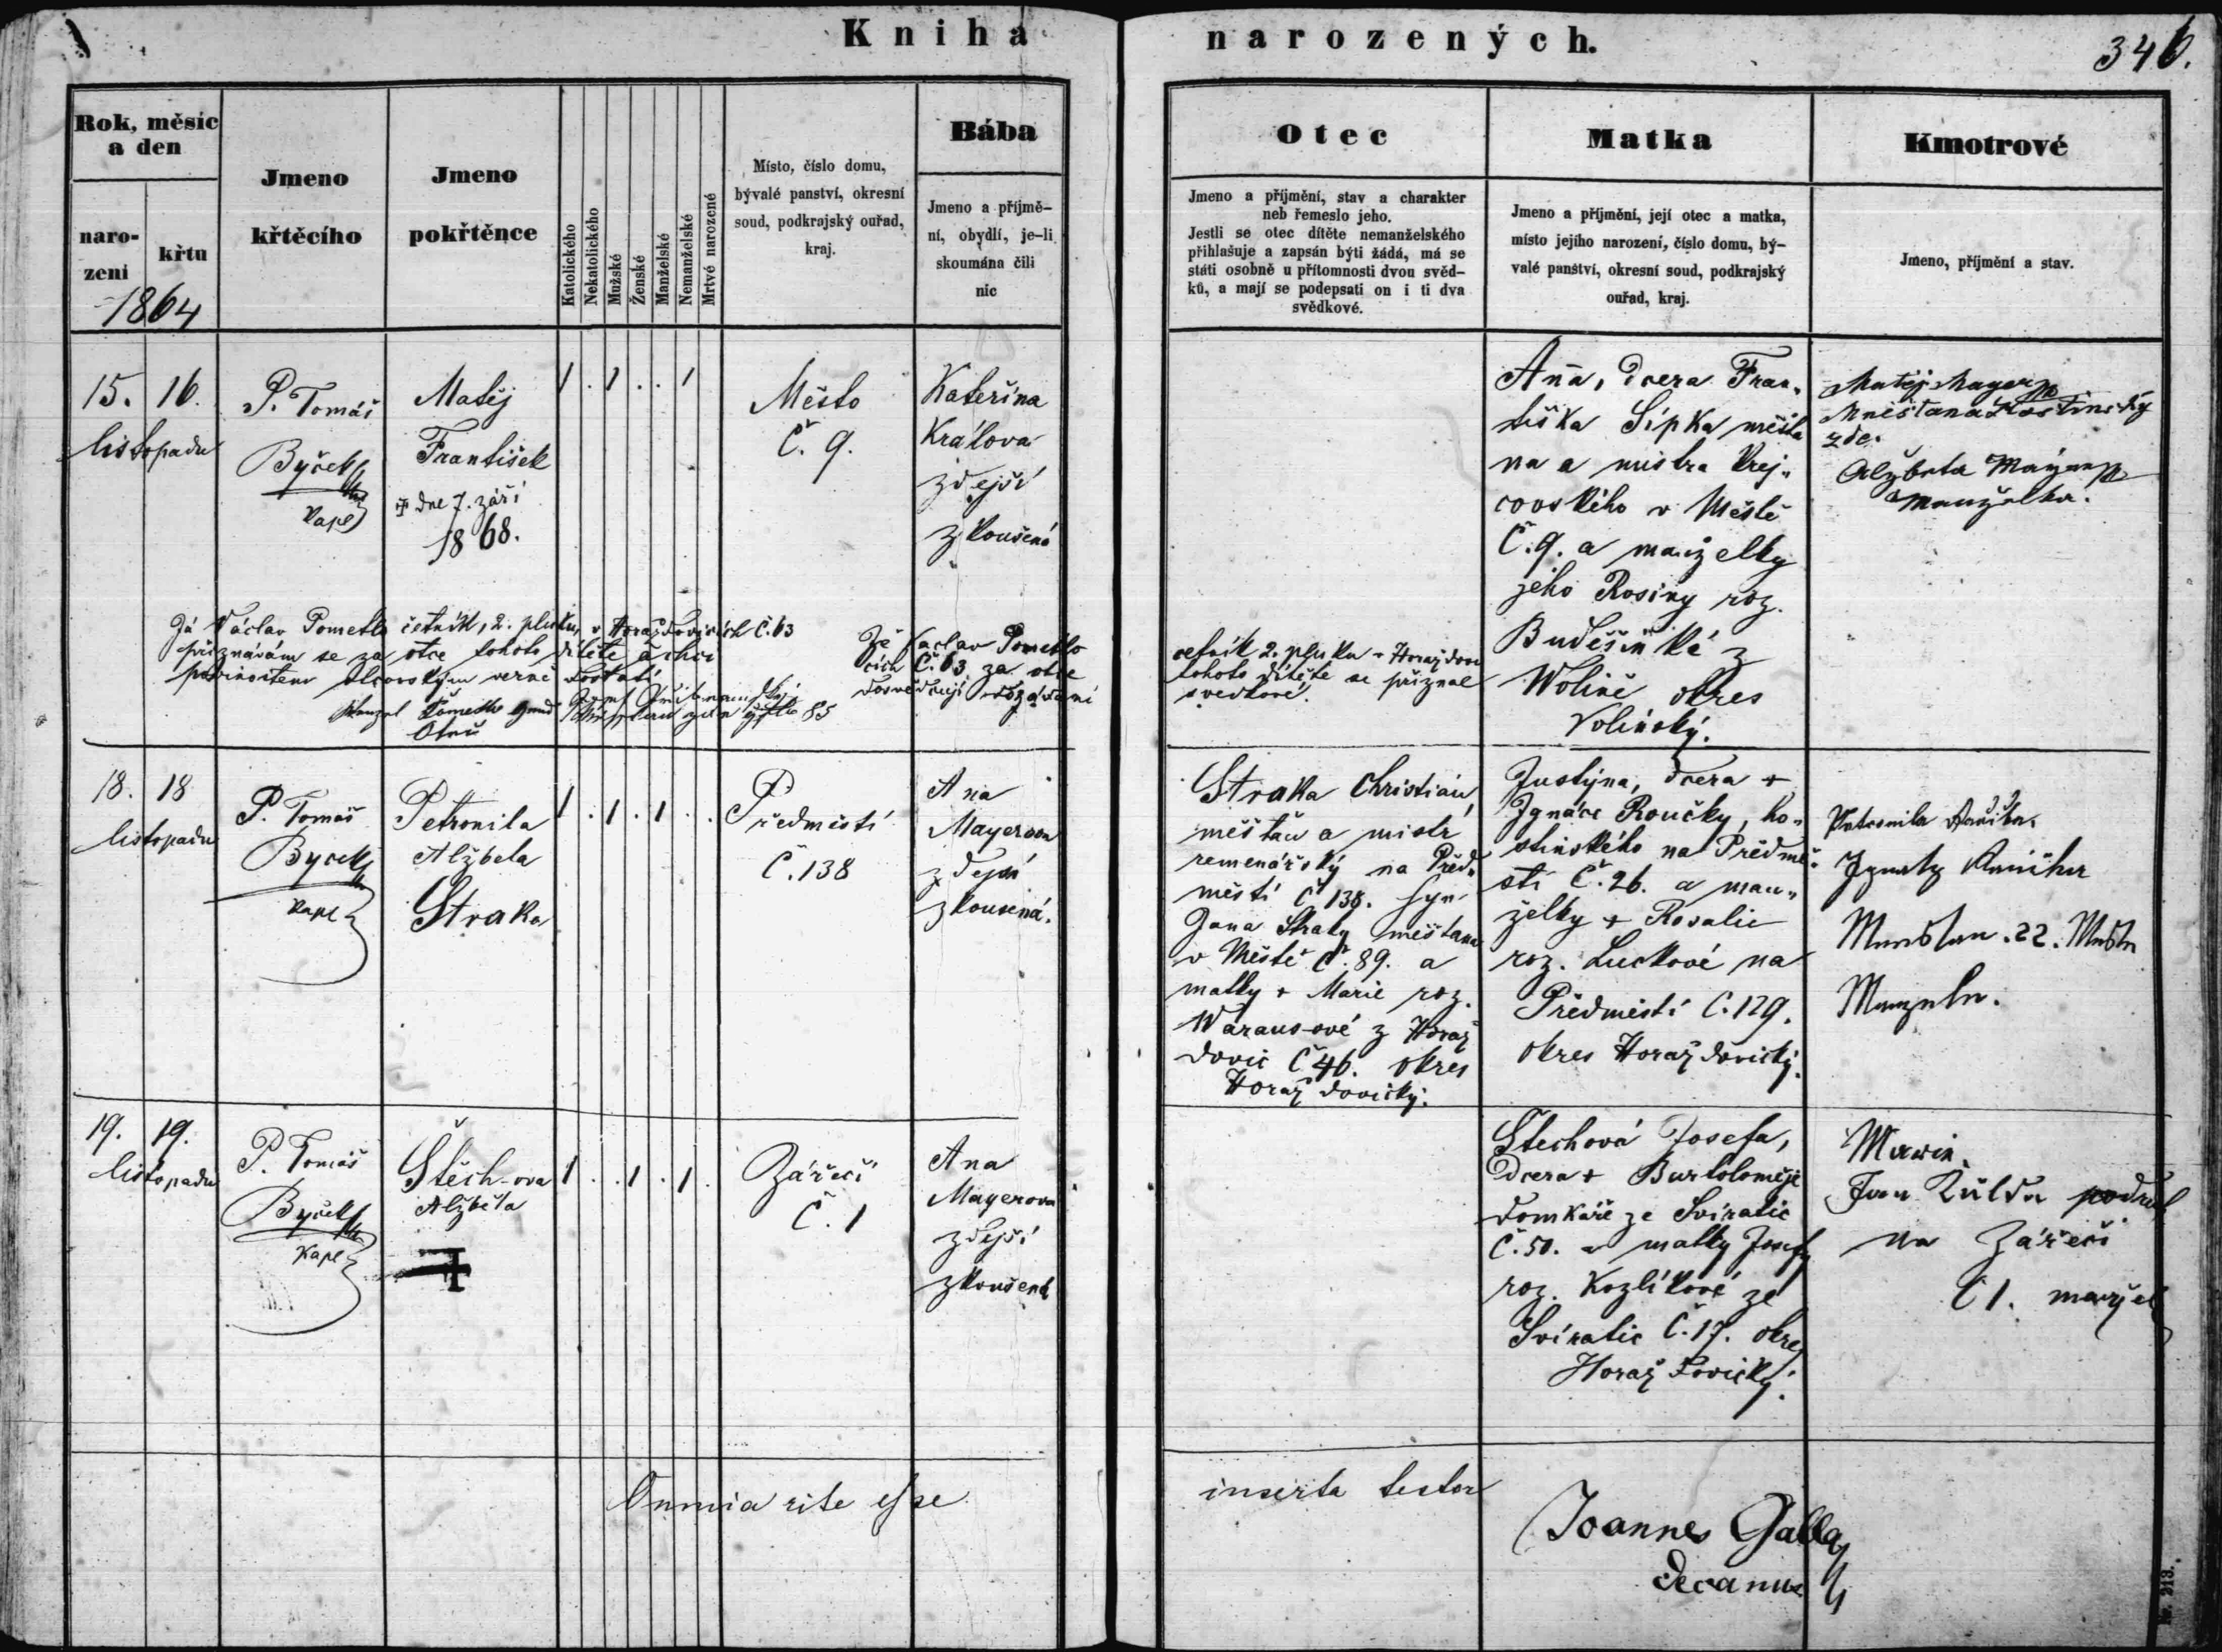 Kniha narozených.
346.
Rok, měsíc
a den
naro-
zení
křtu
1864
Jmeno
křtěcího
Jmeno
pokřtěnce
Katolického
Nekatolického
Mužské
Ženské
Manželské
Nemanželské
Mrtvé narozené
Místo, číslo domu,
bývalé panství, okresní
soud, podkrajský ouřad,
kraj.
Bába
Jmeno a příjmě-
ní, obydlí, je-li
skoumána čili
nic
Otec
Jmeno a příjmění, stav a charakter
neb řemeslo jeho.
Jestli se otec dítěte nemanželského
přihlašuje a zapsán býti žádá, má se
státi osobně u přítomnosti dvou svěd-
ků, a mají se podepsati on i ti dva
svědkové.
Matka
Jmeno a příjmění, její otec a matka,
místo jejího narození, číslo domu, bý-
valé panství, okresní soud, podkrajský
ouřad, kraj.
Kmotrové
Jmeno, příjmění a stav.
15. 16.
listopadu
P. Tomáš
Byček
Kapl
Matěj
František
+ dne 7. září
1868.
1 . 1 . . 1
Město
Č. 9.
Kateřina
Králova
zdejší
zkoušená
Anna, dcera Fran-
tiška Šípka měšťa
na a mistra krej-
covského v Městě
Č. 9. a manželky
jeho Rosiny roz.
Buděšínké z
Wolině okres
Volinský.
Matěj Mayer
zde.
Alžbeta Mayer
Manželka.
Já Václav Pometlo četník, 2. pluku, v Horažďovicích č. 63
přiznávám se za otce tohoto dítěte a chci
povinostem otcovským verně dostáti
Wenzel Pometlo
Že Vaclav Pometlo
cích Č. 63 za otce
dosvědčují
četník 2. pluku v Horaždovi
tohoto dítěte se přiznal
svedkové.
18. 18
listopadu
P. Tomáš
Byček
Kapl
Petronila
Alžbeta
Straka
1 . 1 . 1 . .
Předměstí
Č. 138
Ana
Mayerova
zdejší
zkoušená.
Straka Christián,
měšťan a mistr
remenářský na Před-
městí č 138. syn
Jana Straky měšťana
v Městě č. 89. a
matky + Marie roz.
Waraus-ové z Horaž
dovic Č 46. okres
Horaždovický.
Justýna, dcera +
Ignáce Roučky, ho-
stinského na Předmě-
stí Č. 26. a man-
želky + Rosalie
roz. Luckové na
Předměstí Č. 129.
okres Horaždovický.
Petronila
Ignatz
22.
19. 19.
listopadu
P. Tomáš
Byček
Kapl
Štěch-ova
Alžběta
+
1 . . 1 . 1 .
Zářečí
Č. 1
Ana
Mayerova
zdejší
zkoušená
Štechová Josefa,
dcera + Bartoloměje
domkáře ze Svíratic
Č. 50. a matky Josefy
roz. Kozlíkové ze
Svíratic Č. 17. okres
Horaždovický.
na Zářečí
Č 1. manžel
Omnia rite esse inserta testor
Joannes Galla
Decanus
Nr. 213.